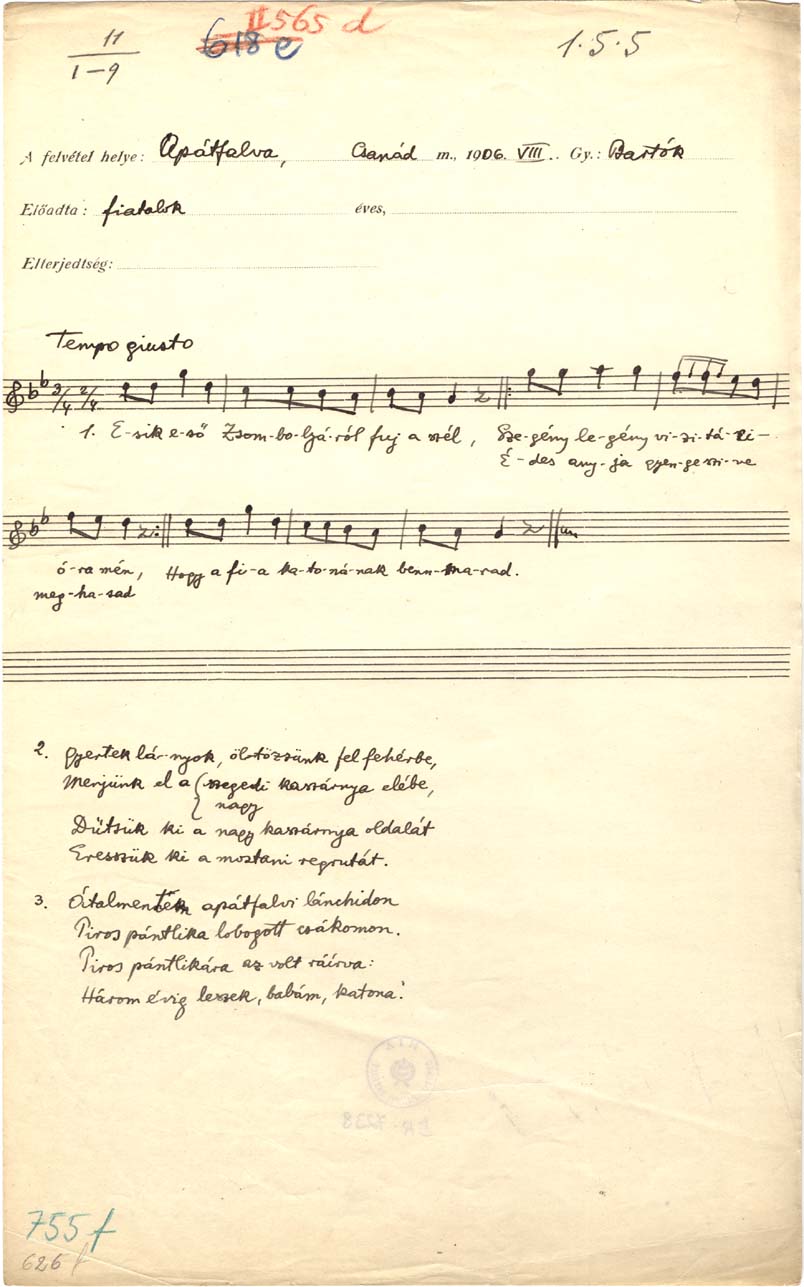 11
1-9
II 565 d
618 e
1.5.5
A felvétel helye: Apátfalva, Csanád m., 1906. VIII.. Gy.: Bartók
Előadta: fiatalok éves,
Elterjedtség:
Tempo giusto
3/4 2/4
1. E-sik e-ső Zsom-bo-ljá-ról fuj a szél, Sze-gény le-gény vi-zi-tá-ci-
É-des any-ja gyen-ge szi-ve
ó-ra mén, Hogy a fi-a ka-to-ná-nak benn-ma-rad.
meg-ha-sad
2. Gyertek lá-nyok, öltözzünk fel fehérbe,
Menjünk el a szegedi kaszárnya elébe,
nagy
Dűtsük ki a nagy kaszárnya oldalát
Eresszük ki a mostani regrutát.
3. Átalmentem apátfalvi lánchidon
Piros pántlika lobogott csákomon.
Piros pántlikára az volt ráirva:
Három évig leszek, babám, katona.
755 f
626 f